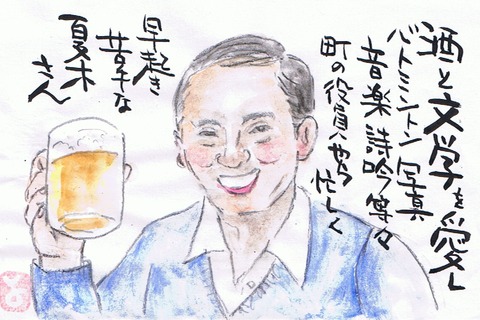 酒と文学を愛し
バトミントン 写真
音楽 詩吟 等々
町の役員やら忙しく
早起き
苦手な
夏木
さん